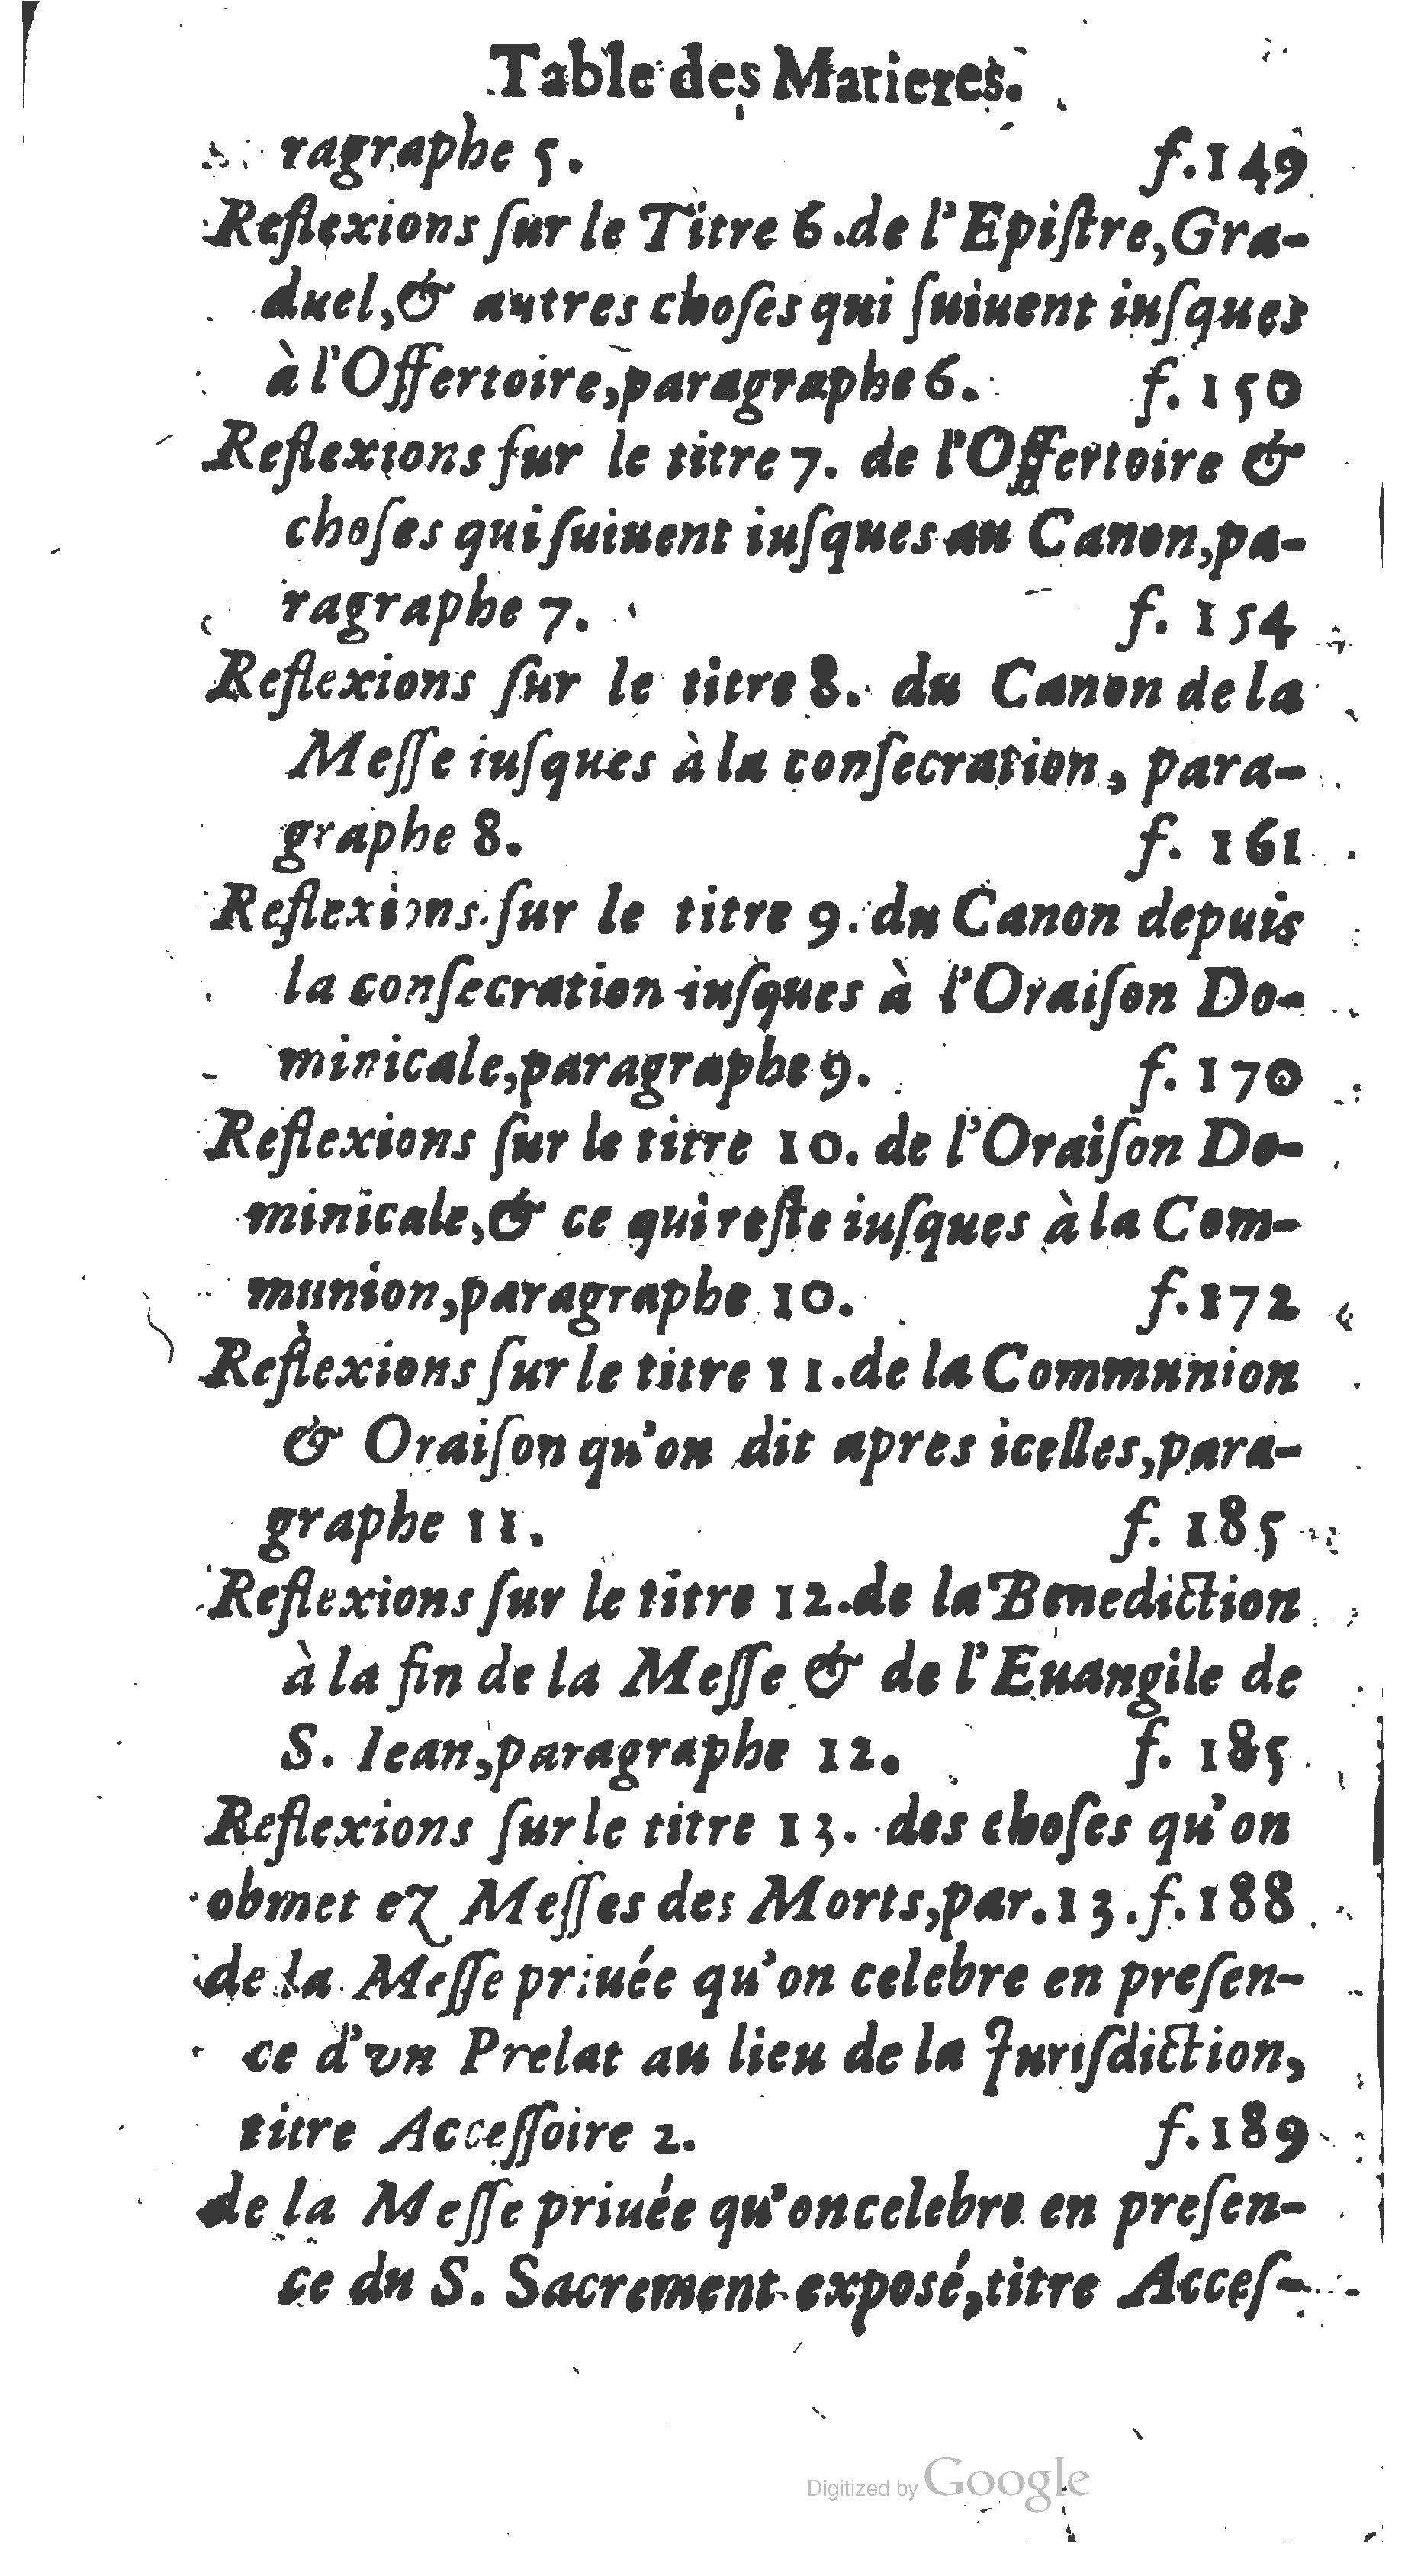 Table des Matieres.
ragraphe 5. f. 149
Reflexions ſur le Titre 6. de l'Epiſtre, Gra-
duel, & autres choſes qui ſuiuent iuſques
à l'Offertoire, paragraphe 6. f. 150
Reflexions ſur le titre 7. de l'Offertoire &
choſes qui ſuiuent iuſques au Canon, pa-
ragraphe 7. f. 154
Reflexions ſur le titre 8. du Canon de la
Meſſe iuſques à la conſecration, para-
graphe 8. f. 161
Reflexions ſur le titre 9. du Canon depuis
la conſecration iuſques à l'Oraiſon Do-
minicale, paragraphe 9. f. 170
Reflexions ſur le titre 10. de l'Oraiſon Do-
minicale, & ce qui reſte iuſques à la Com-
munion, paragraphe 10. f. 172
Reflexions ſur le titre 11. de la Communion
& Oraiſon qu'on dit apres icelles, para-
graphe 11. f. 185
Reflexions ſur le titre 12. de la Benediction
à la fin de la Meſſe & de l'Euangile de
S. Iean, paragraphe 12. f. 185
Reflexions ſur le titre 13. des choſes qu'on
obmet ez Meſſes des Morts, par. 13. f. 188
de la Meſſe priuée qu'on celebre en preſen-
ce d'vn Prelat au lieu de la Jurisdiction,
titre Acceſſoire 2. f. 189
de la Meſſe priuée qu'on celebre en preſen-
ce du S. Sacrement exposé, titre Acceſ-
Digitized by Google